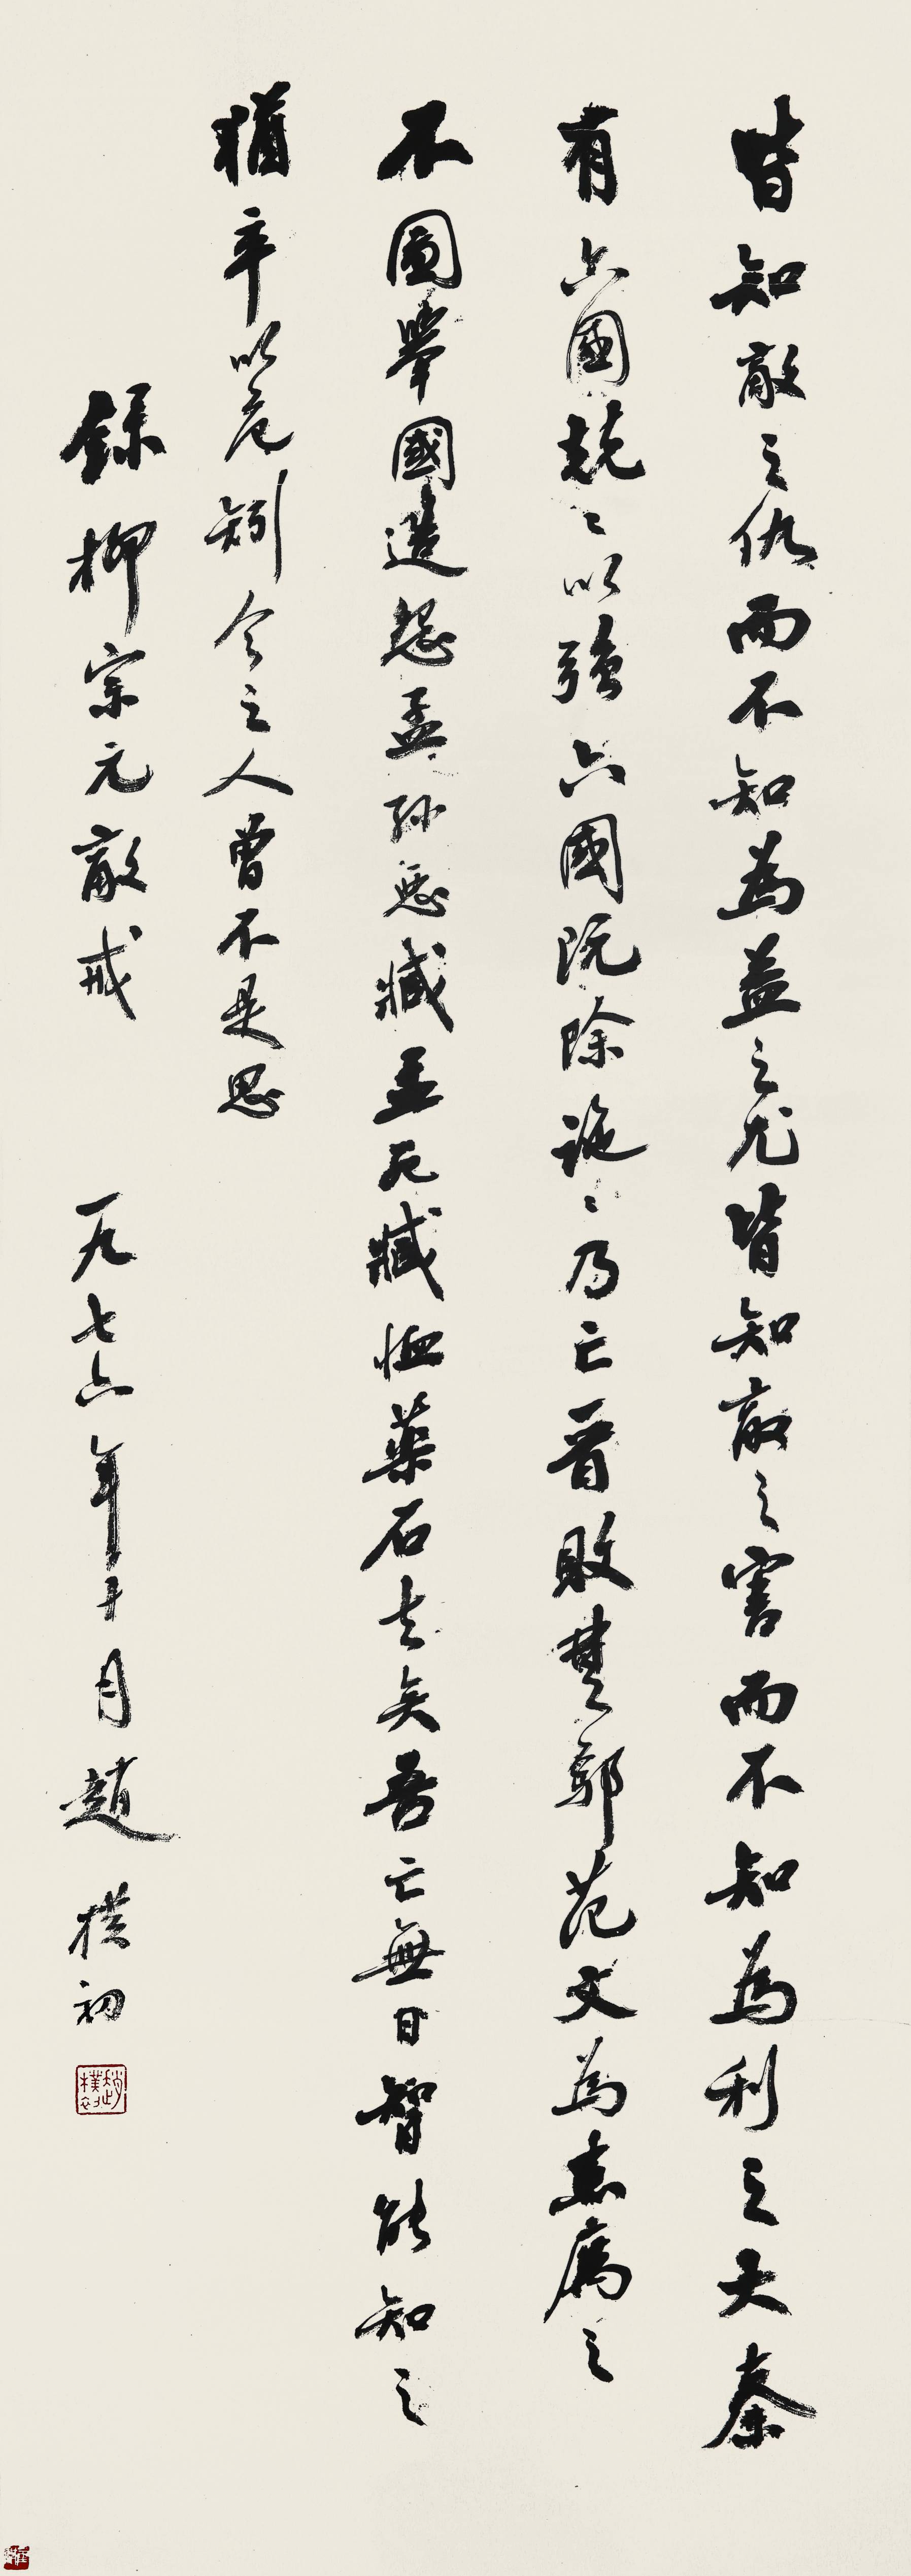 皆知敵之仇而不知為益之尤皆知敵之害而不知為利之大秦
有六國兢々以強六國既除訑々乃亡晉敗楚鄢范文為患厲之
不圖舉國造怨孟孫惡臧孟死臧恤藥石去矣吾亡無日智能知之
猶卒以危矧今之人曾不是思
錄柳宗元敵戒 一九七六年十月趙樸初
趙樸初